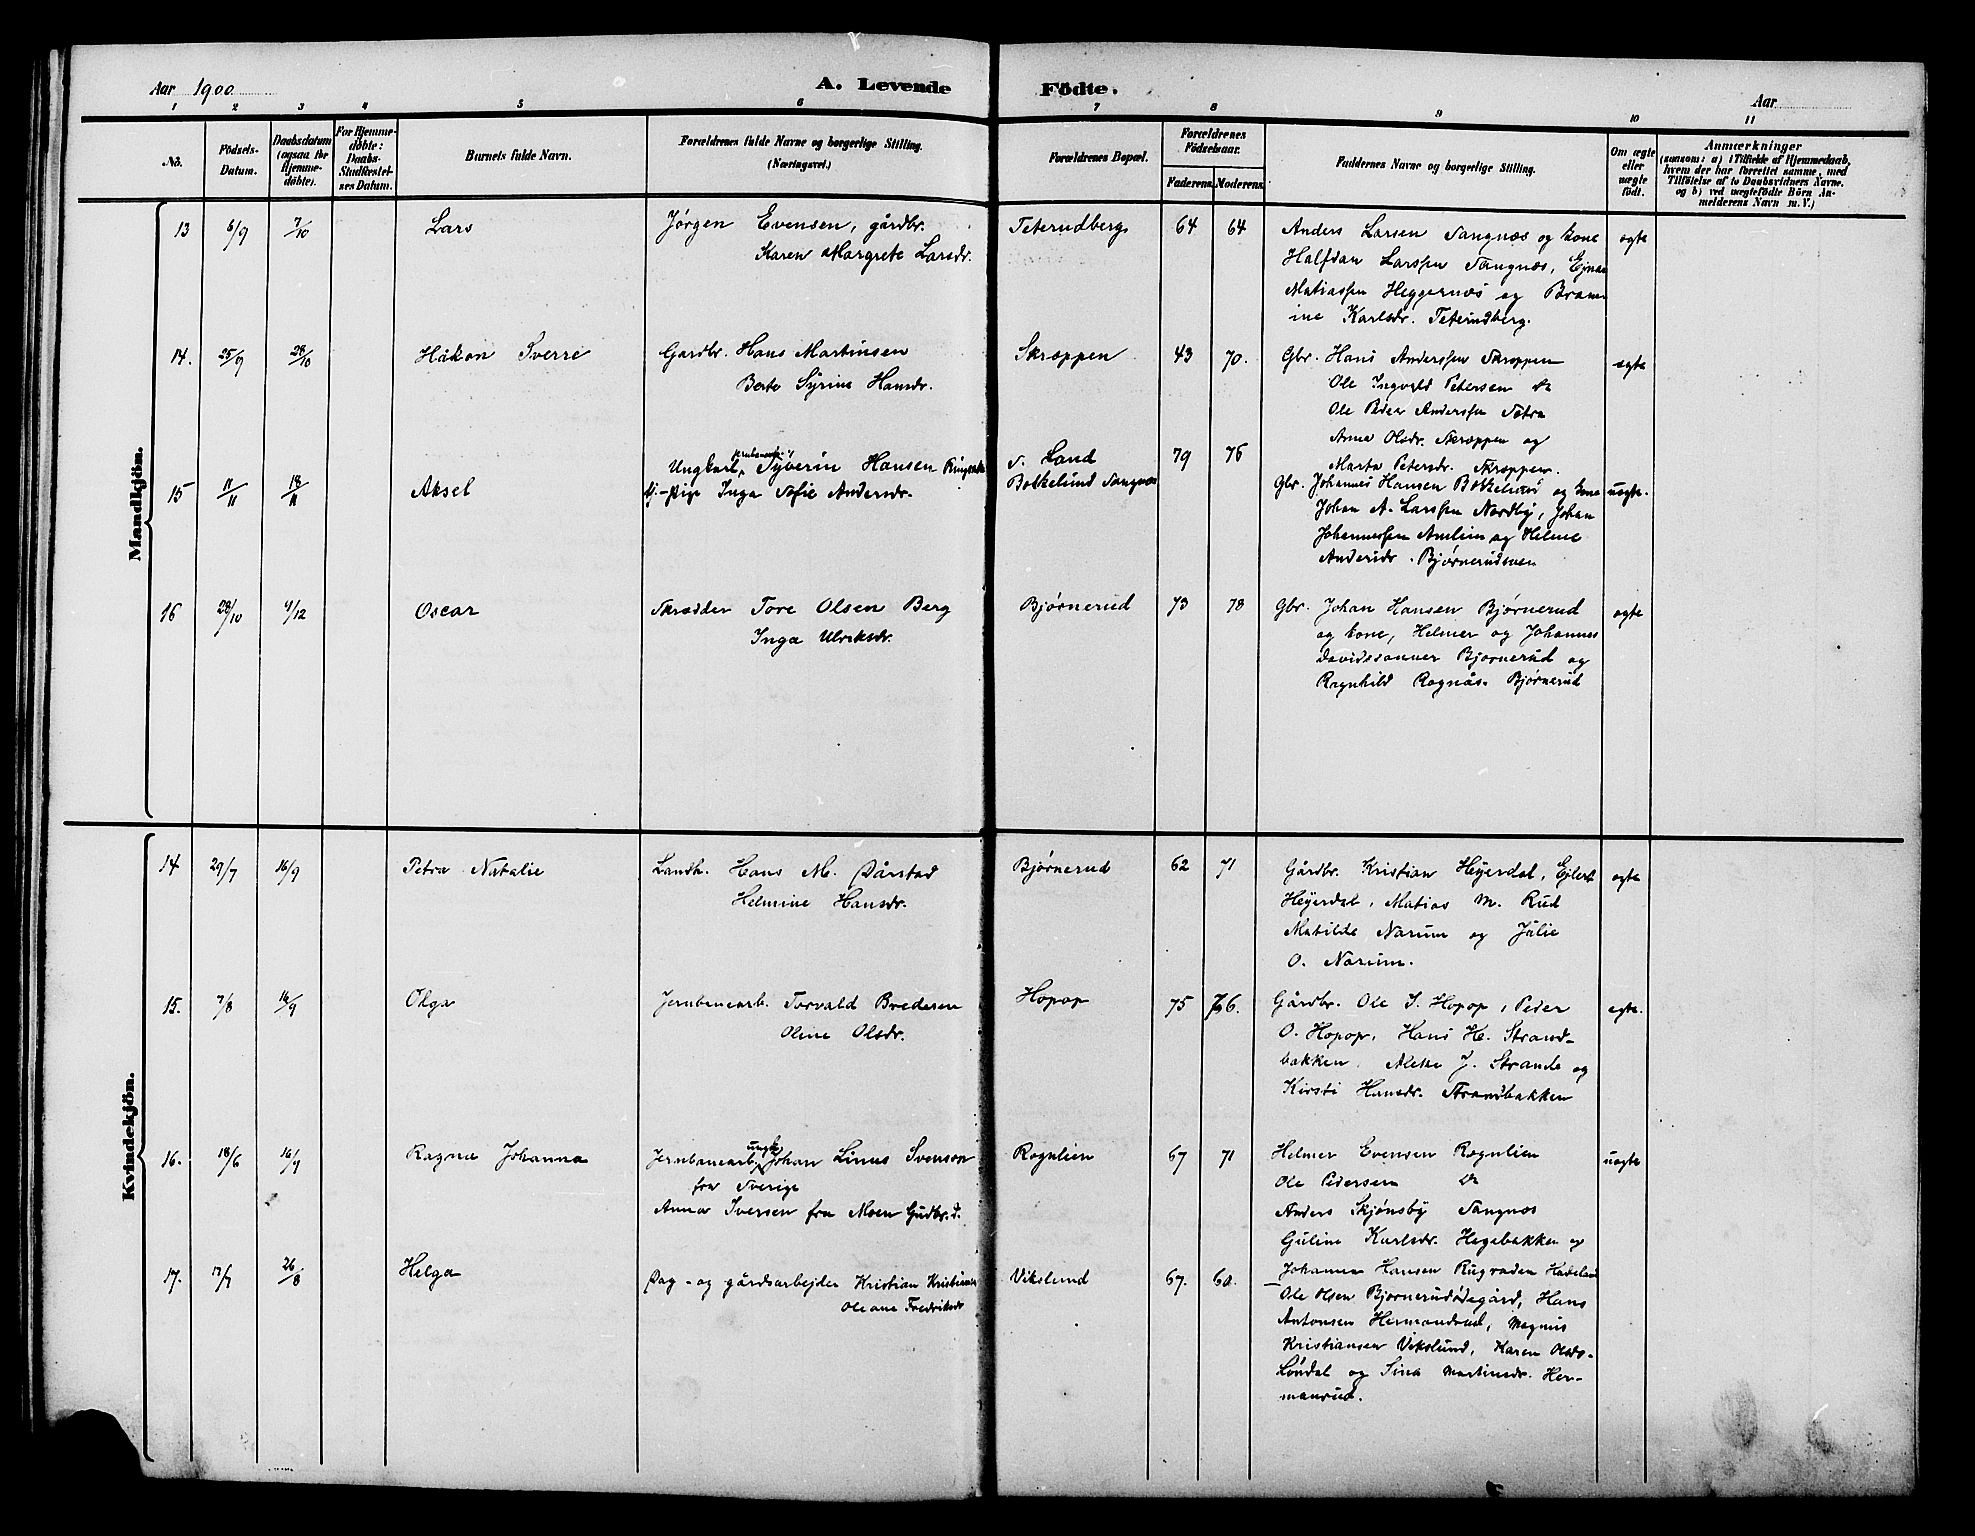 Aar 1900
A. Levende Födte.
Aar
1 2 3 4 5 6 7 8 9 10 11
No.
Födsels-
Datum.
Daabsdatum
(ogsaa for
Hjemme-
døbte).
For Hjemme-
døbte:
Daabs-
Stadfæstel-
ses Datum.
Barnets fulde Navn.
Forældrenes fulde Navne og borgerlige Stilling.
(Næringsvei.)
Forældrenes Bopæl.
Forældrenes
Födselsaar.
Faderens. Moderens.
Faddernes Navne og borgerlige Stilling.
Om ægte
eller
uægte
födt.
Anmærkninger
(saasom: a) i Tilfælde af Hjemmedaab,
hvem der har forrettet samme, med
Tilföielse af to Daabsvidners Navne,
og b) ved uægtefödte Börn An-
melderens Navn m. V.)
Mandkjön.
13 6/9 7/10 Lars Jørgen Evensen, gårdbr.
Karen Margrete Larsdr.
Teterudberg 64 64
Anders Larsen Sangnæs og kone
Halfdan Larssen Sangnæs, Ejnar
Matiassen Heggernæs og Bram-
ine Karlsdr. Teterudberg.
ægte
14. 25/9 28/10 Håkon Sverre Gardbr. Hans Martinsen
Berte Syrine Hansdr.
Skrøppen 43 70.
Gbr. Hans Anderssen Skrøppen
Ole Ingvald Petersen Do
Ole Peder Anderssen Sætra
Anna Olsdr. Skrøppen og
Marta Petersdr. Skrøppen.
ægte
15 11/11 18/11 Aksel Ungkarl, Syverin Hansen
pige Inga Sofie Andersdr.
S. Land
Bokkelund Sangnæs
79 76
Gbr. Johannes Hansen og kone
Johan A. Larssen Nordby, Johan
Johannessen og Helene
Andersdr. Bjørnerudsveen
uægte.
16 28/10 4/12 Oscar Skrædder Tore Olsen Berg
Inga Ulriksdr.
Bjørnerud 73 78
Gbr. Johan Hansen Bjørnerud
og kone, Helmer og Johannes
Davidssønner Bjørnerud og
Ragnhild Rognås. Bjørnerud
ægte
Kvindekjön.
14 29/7 16/9 Petra Natalie Landh. Hans M. Pårstad
Helmine Hansdr.
Bjørnerud 62 71
Gårdbr. Kristian Heyerdal, Ejlert
Heyerdal, Matias M. Rud
Matilde Narum og Julie
O. Narum.
ægte
15. 7/8 16/9 Olga Jernbanearb. Torvald Bredesen
Oline Olsdr.
Hopop 75 76.
Gårdbr. Ole I. Hopop, Peder
O. Hopop, Hans H. Strand-
bakken, Alette J. Strande og
Kirsti Hansdr. Strandbakken
ægte.
16. 18/6 16/9 Ragna Johanna Jernbanearb. ungk. Johan Linus Svenson
fra Sverige
Anna Iversen fra Moen Gudbr. d.
Rognlien 67 71
Helmer Evensen Rognlien
Ole Pedersen Do
Anders Skjønsby Sangnæs
Guline Karlsdr. Hagebakken og
Johanna Hansen Hadeland
uægte
17. 17/7 26/8 Helga Dag- og gårdsarbejder Kristian Kristiansen
Oleane Fredriksdr
Vikslund 67. 60.
Ole Olsen Bjørnerudødegård, Hans
Antonsen Hermanrud, Magnus
Kristiansen Vikslund, Karen Olsdr.
Løndal og Sina Martinsdr. Her-
manrud.